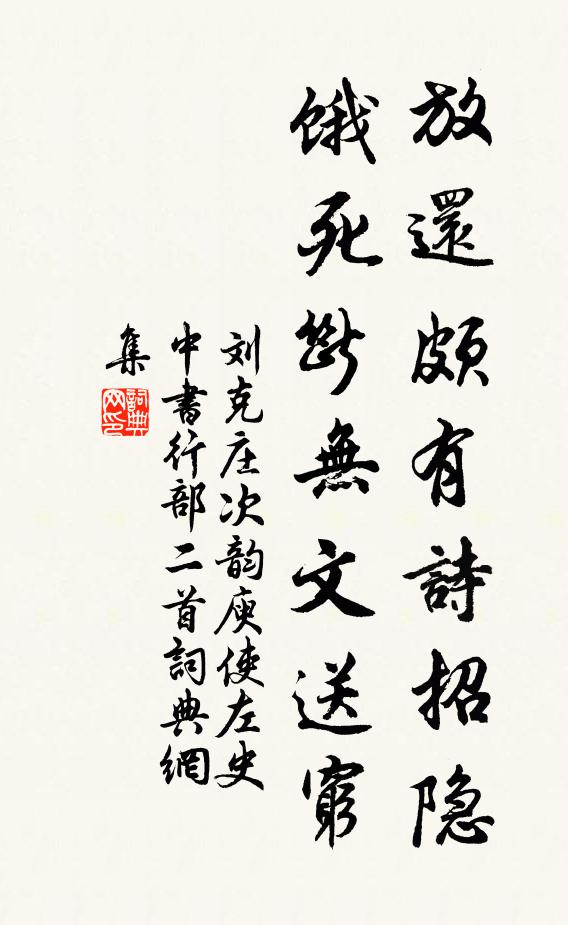 放還頗有詩招隐
饿死斷無文送窮
刘克庄次韵庾使左史
中書行部二首詞典網
集
詞典
网印